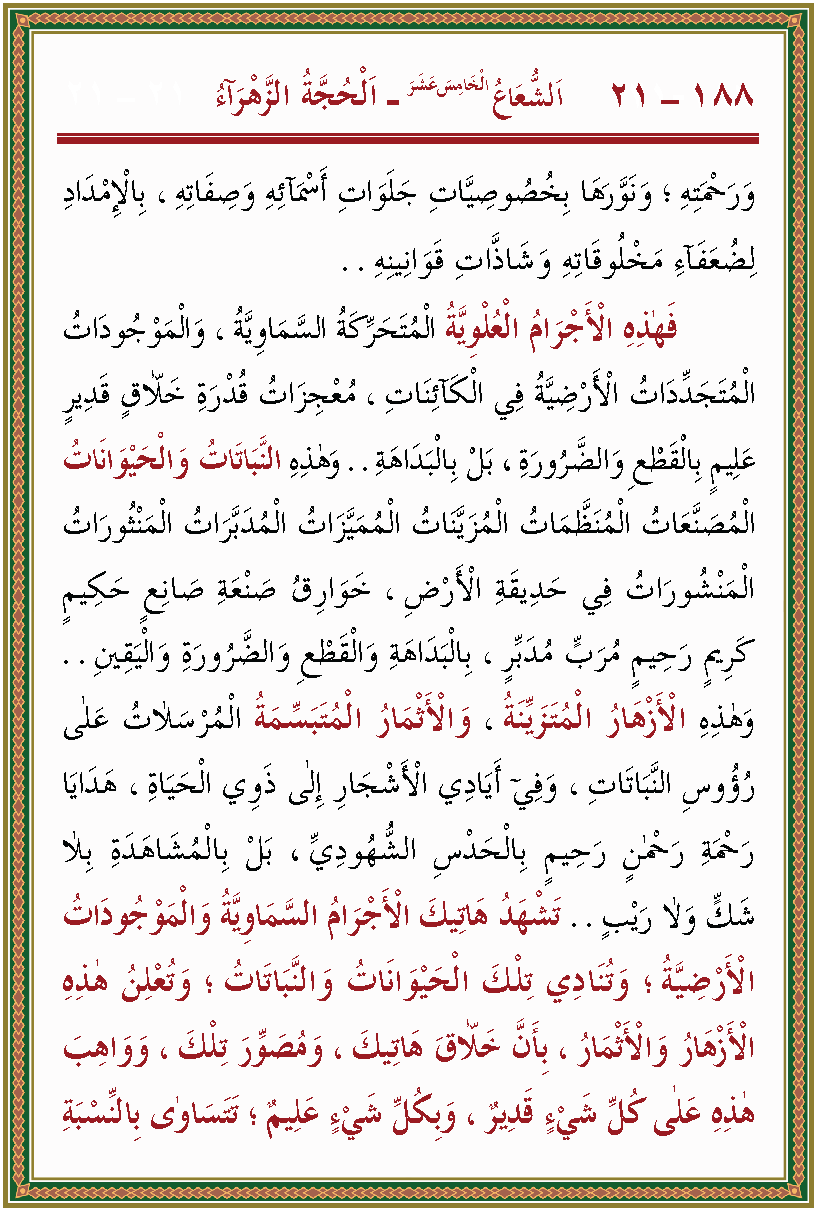 ١٨٨ – ٢١ اَلشُّعَاعُ الْخَامِسَ عَشَرَ – اَلْحُجَّةُ الزَّهْرَآءُ ٢١ – ٢١
وَرَحْمَتِهِ ؛ وَنَوَّرَهَا بِخُصُوصِيَّاتِ جَلَوَاتِ أَسْمَآئِهِ وَصِفَاتِهِ ، بِالْإِمْدَادِ
لِضُعَفَآءِ مَخْلُوقَاتِهِ وَشَاذَّاتِ قَوَانِينِهِ . .
فَهٰذِهِ الْأَجْرَامُ الْعُلْوِيَّةُ الْمُتَحَرِّكَةُ السَّمَاوِيَّةُ ، وَالْمَوْجُودَاتُ
الْمُتَجَدِّدَاتُ الْأَرْضِيَّةُ فِي الْكَآئِنَاتِ ، مُعْجِزَاتُ قُدْرَةِ خَلَّاقٍ قَدِيرٍ
عَلِيمٍ بِالْقَطْعِ وَالضَّرُورَةِ ، بَلْ بِالْبَدَاهَةِ . . وَهٰذِهِ النَّبَاتَاتُ وَالْحَيْوَانَاتُ
الْمُصَنَّعَاتُ الْمُنَظَّمَاتُ الْمُزَيَّنَاتُ الْمُمَيَّزَاتُ الْمُدَبَّرَاتُ الْمَنْثُورَاتُ
الْمَنْشُورَاتُ فِي حَدِيقَةِ الْأَرْضِ ، خَوَارِقُ صَنْعَةِ صَانِعٍ حَكِيمٍ
كَرِيمٍ رَحِيمٍ مُرَبٍّ مُدَبِّرٍ ، بِالْبَدَاهَةِ وَالْقَطْعِ وَالضَّرُورَةِ وَالْيَقِينِ . .
وَهٰذِهِ الْأَزْهَارُ الْمُتَزَيِّنَةُ ، وَالْأَثْمَارُ الْمُتَبَسِّمَةُ الْمُرْسَلَاتُ عَلٰى
رُؤُوسِ النَّبَاتَاتِ ، وَفِي أَيَادِي الْأَشْجَارِ إِلٰى ذَوِي الْحَيَاةِ ، هَدَايَا
رَحْمَةِ رَحْمٰنٍ رَحِيمٍ بِالْحَدْسِ الشُّهُودِيِّ ، بَلْ بِالْمُشَاهَدَةِ بِلَا
شَكٍّ وَلَا رَيْبٍ . . تَشْهَدُ هَاتِيكَ الْأَجْرَامُ السَّمَاوِيَّةُ وَالْمَوْجُودَاتُ
الْأَرْضِيَّةُ ؛ وَتُنَادِي تِلْكَ الْحَيْوَانَاتُ وَالنَّبَاتَاتُ ؛ وَتُعْلِنُ هٰذِهِ
الْأَزْهَارُ وَالْأَثْمَارُ ، بِأَنَّ خَلَّاقَ هَاتِيكَ ، وَمُصَوِّرَ تِلْكَ ، وَوَاهِبَ
هٰذِهِ عَلٰى كُلِّ شَيْءٍ قَدِيرٌ ، وَبِكُلِّ شَيْءٍ عَلِيمٌ ؛ تَتَسَاوٰى بِالنِّسْبَةِ